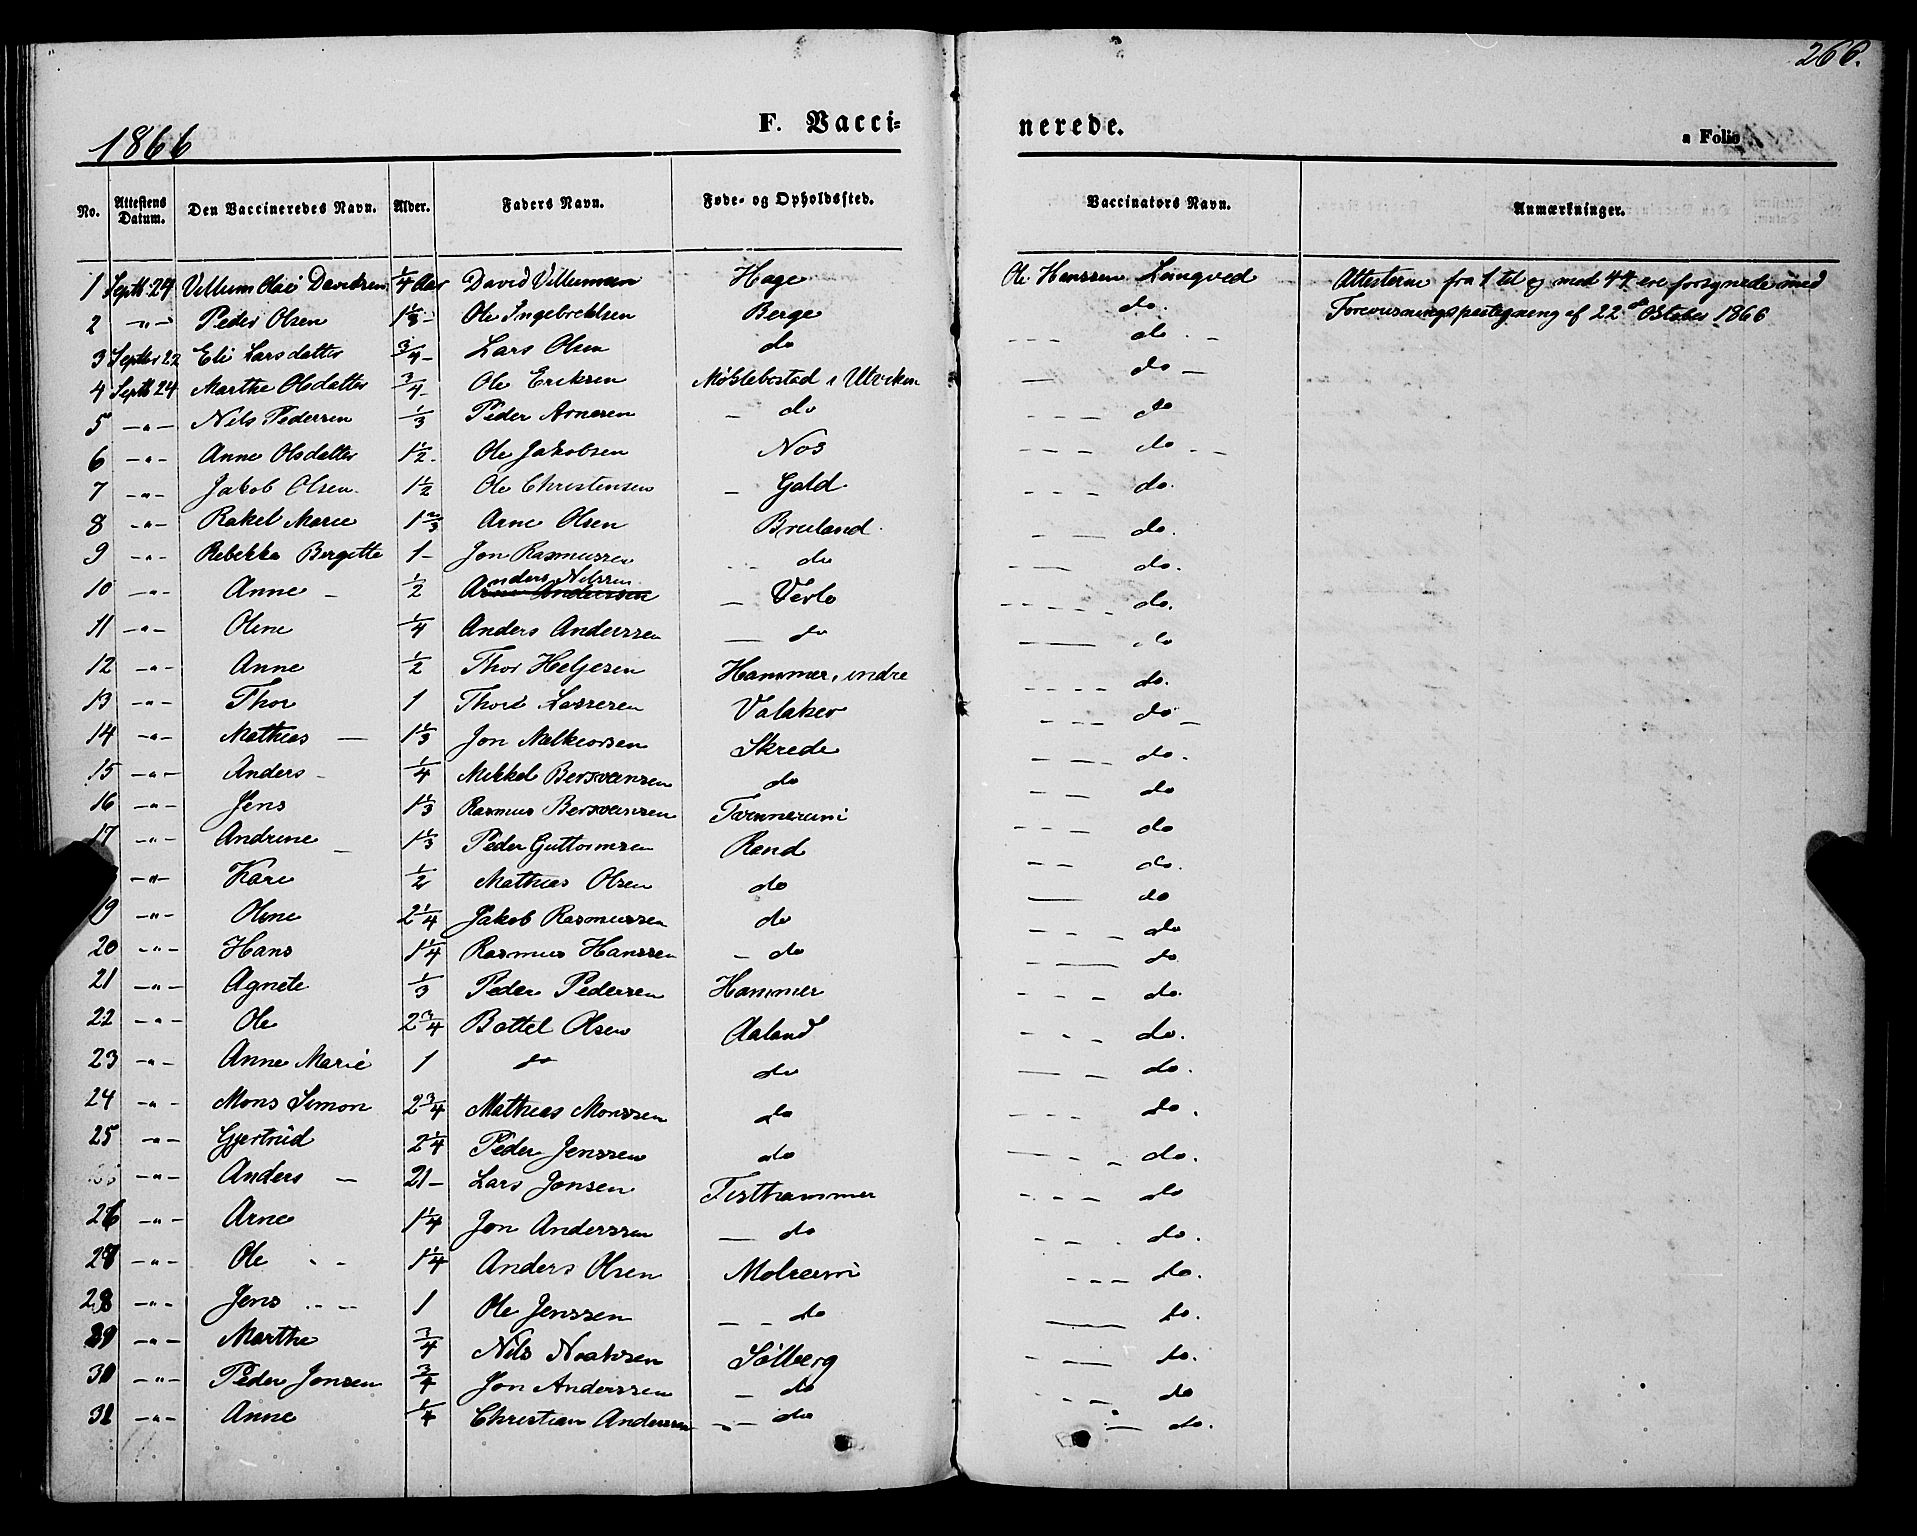 266.
1866 F. Vacci= nerede. a Folio
No. Attestens Datum. Den Vaccineredes Navn. Alder. Faders Navn. Føde- og Opholdssted. Vaccinators Navn. Anmærkninger.
1 Septb 24 Villum Olai Davidsen 1/4 Aar David Villumsen Hage Ole Hanssen Langved Attesterne fra 1 til og med 44 ere forsynede med
2 -"- Peder Olsen 1 1/3 - Ole Ingebrektsen Berge do. Forevisningspaategning af 22de Oktober 1866
3 Septbr 22 Eli Larsdatter 3/4 - Lars Olsen do do
4 Septb 24 Marthe Olsdatter 3/4 - Ole Eriksen i Utviken do -
5 -"- Nils Pedersen 1/3 Peder Arnesen - do do
6 -"- Anne Olsdatter 1 1/2 - Ole Jakobsen Nos do
7 -"- Jakob Olsen 1 1/2 Ole Christensen - Gald do.
8 -"- Rakel Marie 1 2/3 Arne Olsen Bruland do.
9 -"- Rebekka Bergitte 1 - Jon Rasmussen do do.
10 -"- Anne - 1/2 Anders Nilssen - Verlo do.
11 -"- Oline 1/4 Anders Anderssen - do do
12 -"- Anne 1/2 Thor Helgesen Hammer, indre do.
13 -"- Thor 1 Lassesen Valaker do -
14 -"- Mathias - 1 1/3 Jon Melkiorsen Skrede do.
15 -"- Anders - 1/4 Mikkel Bersvensen do do
16 -"- Jens 1 1/3 Rasmus Bersvensen do
17 -"- Andrine - 1 1/3 Peder Guttormsen Rand do.
-"- Kari 1/2 Mathias Olsen do do
19 -"- Oline 2 1/4 Jakob Rasmussen do do
20 -"- Hans 1 1/4 Rasmus Hanssen - do do
21 -"- Agnete 1/3 Peder Pedersen Hammer do.
22 -"- Ole 2 3/4 Bottel Olsen Aaland do.
23 -"- Anne Marie 1 do do do.
24 -"- Mons Simon 2 3/4 Mathias Monssen do do.
25 -"- Gjertrud 2 1/4 Peder Jenssen do do.
-"- Anders - 21 - Lars Jonsen Tisthammer do
26 -"- Arne 1 1/4 Jon Anderssen - do do.
27 -"- Ole 1 1/4 Anders Olsen do.
28 -"- Jens 1 Ole Jenssen - do do.
29 -"- Marthe 3/4 Nils Sølberg do.
30 -"- Peder Jonsen 3/4 Jon Anderssen - do do
31 -"- Anne 1/4 Christian Anderssen - do do.